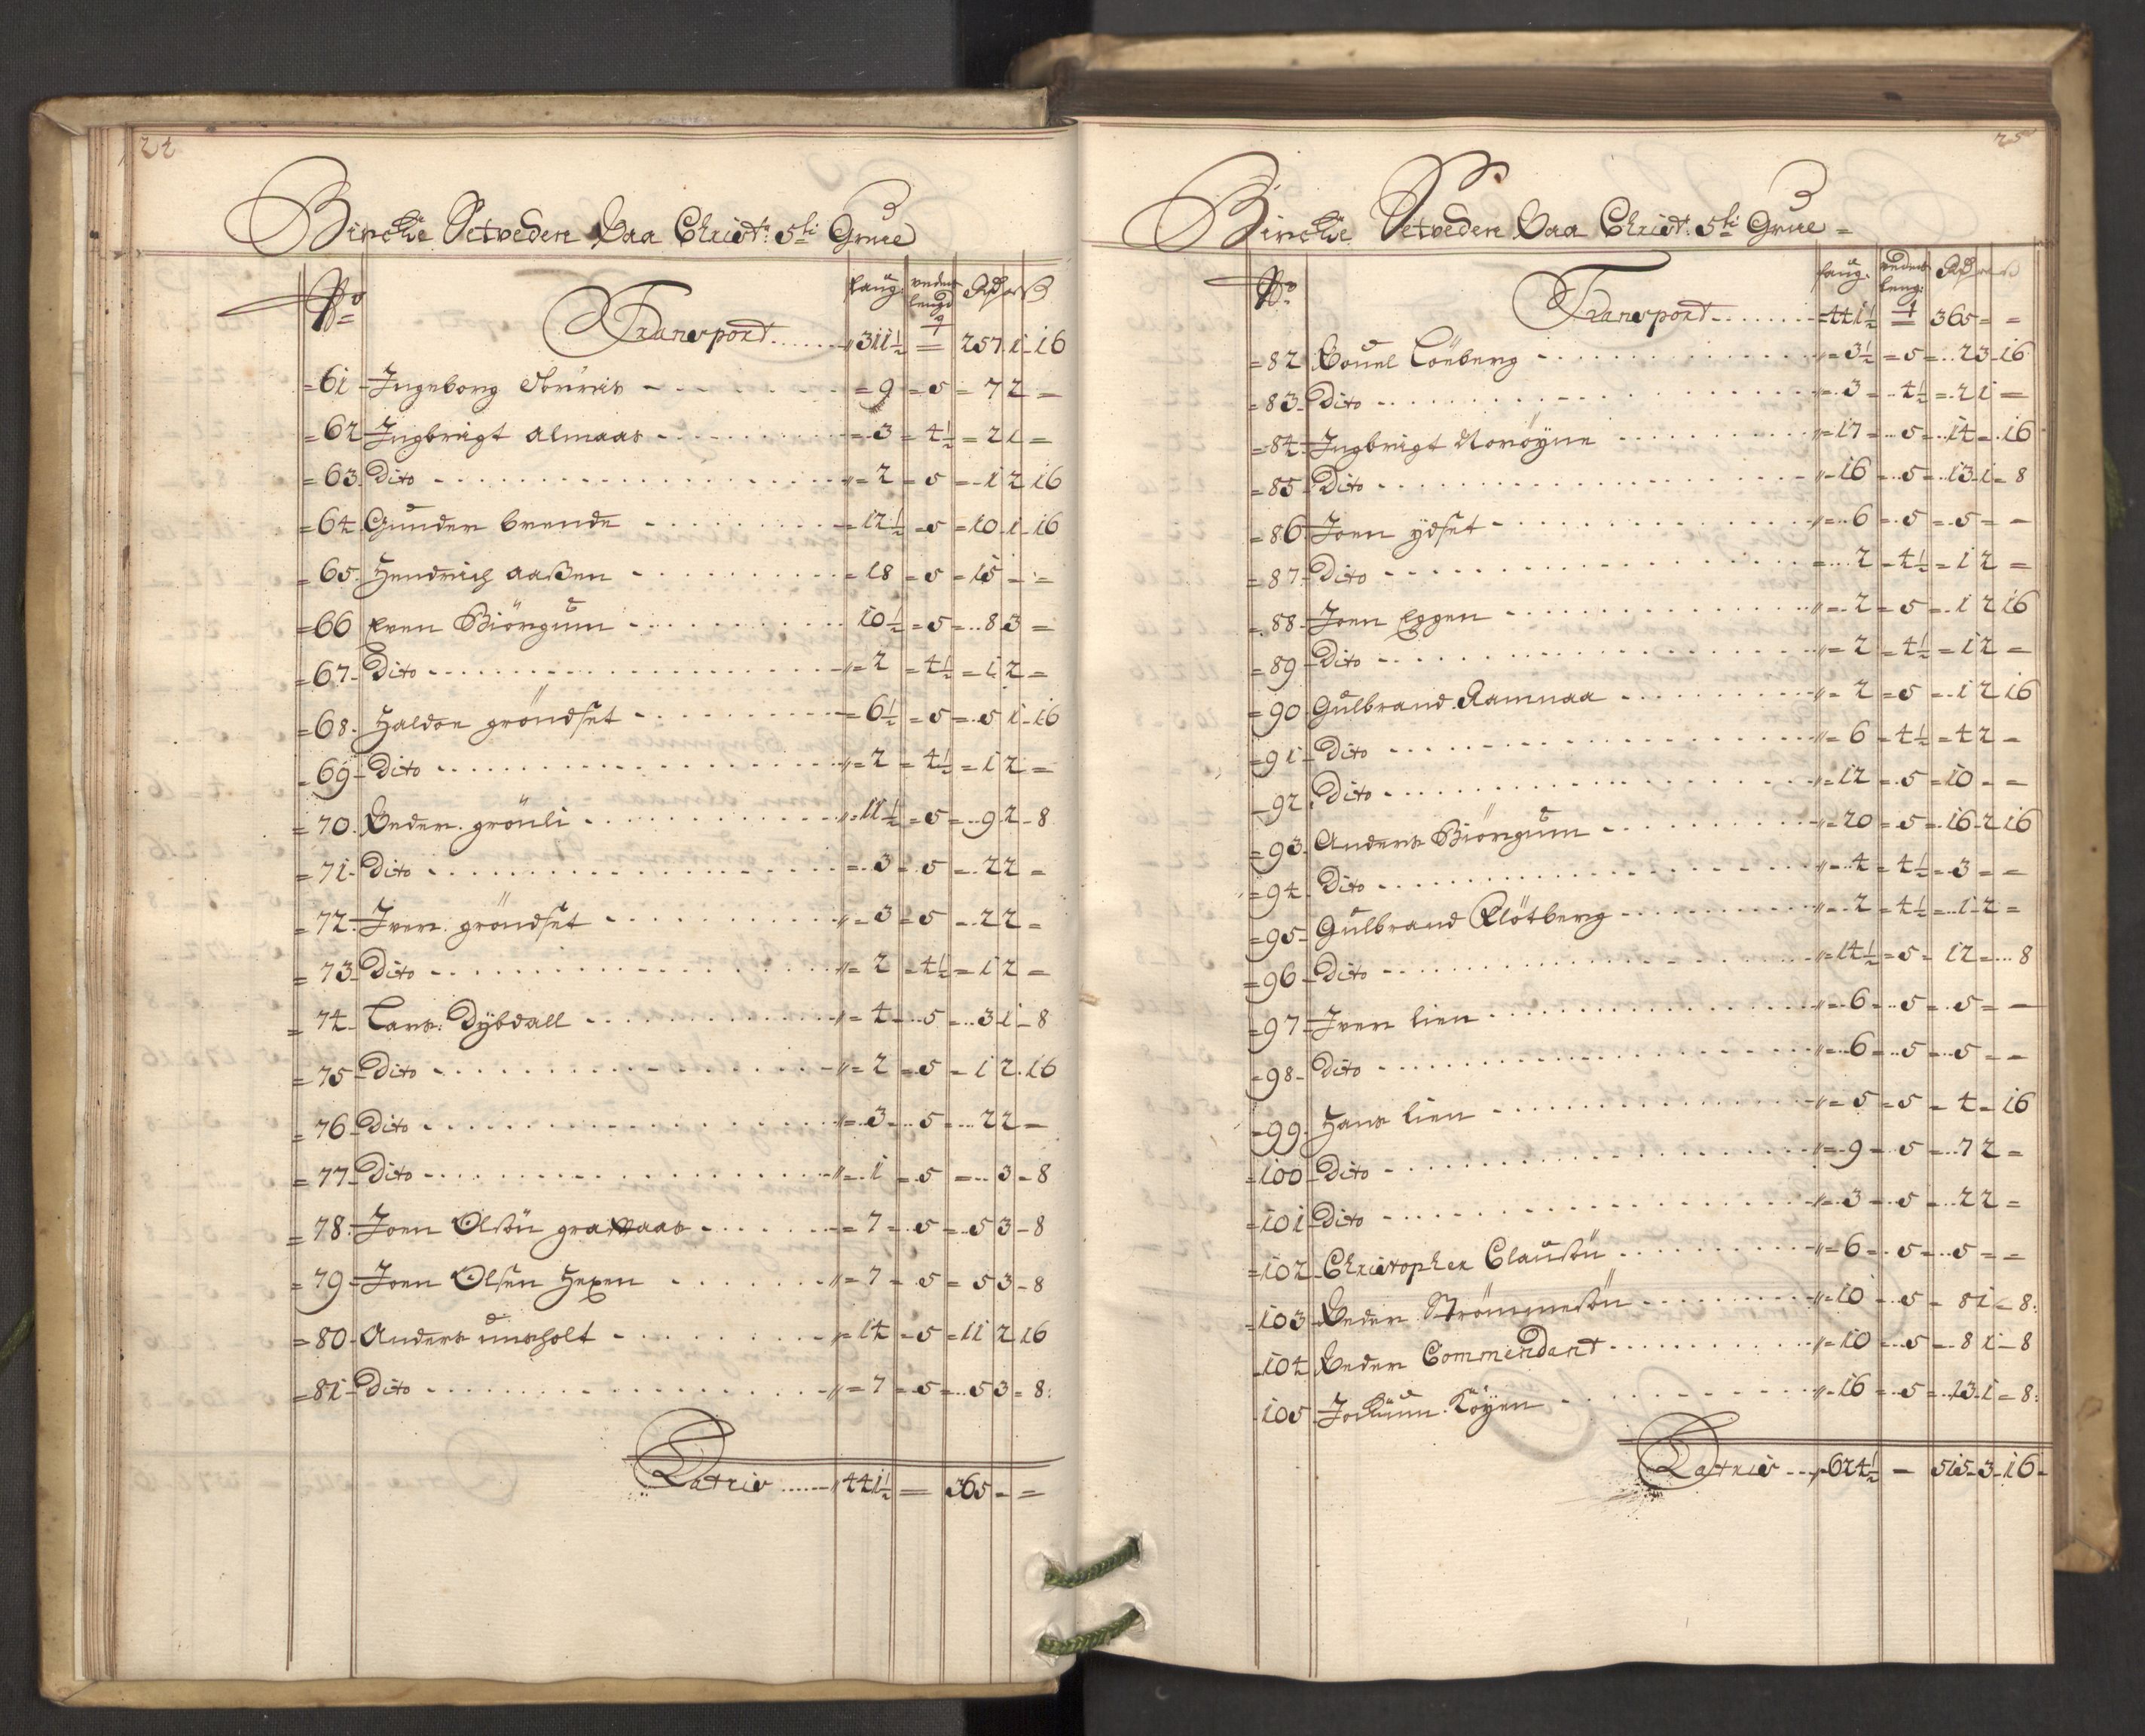 24
Bircke Setveden Paa Christ: 5ti Grue
No faug: vedens lengd Rdr ort ß
Transport ...... 311½ = 4 257 1 16
61 Ingeborg Sturis 9 5 7 2 =
62 Ingbrigt Almaas 3 4½ 2 1 =
63 Dito 2 5 1 2 16
64 Gunder brende 12½ 5 10 1 16
65 Hendrich Aaßen 18 5 15 - =
66 Even Biörgum 10½ 5 8 3 =
67 Dito 2 4½ 1 2 =
68 Haldor gröndset 6½ 5 5 1 16
69 Dito 2 4½ 1 2 =
70 Peder grönli 11½ 5 9 2 8
71 Dito 3 5 2 2 =
72 Iver gröndset 3 5 2 2 =
73 Dito 2 4½ 1 2 =
74 Lars Dÿbdall 4 5 3 1 8
75 Dito 2 5 1 2 16
76 Dito 3 5 2 2 =
77 Dito 1 5 = 3 8
78 Joen Olsøn 7 5 5 3 8
79 Joen Olsen Hexem 7 5 5 3 8
80 Anders unsholt 14 5 11 2 16
81 Dito 7 5 5 3 8
Latris ...... 441½ = 365 - =
25
Bircke Setveden Paa Christ: 5ti Grue
No faug: vedens leng: Rdr ort ß
Transport ....... 441½ 4 365 = =
82 Pouel Löeberg 3½ 5 2 3 16
83 Dito 3 4½ 2 1 =
84 Ingbrigt Norøyne 17 5 14 - 16
85 Dito 16 5 13 1 8
86 Joen ÿdset 6 5 5 = =
87 Dito 2 4½ 1 2 =
88 Joen Eggen 2 5 1 2 16
89 Dito 2 4½ 1 2 =
90 Gulbrand Ramnaa 2 5 1 2 16
91 Dito 6 4½ 4 2 =
92 Dito 12 5 10 - =
93 Anders Biörgum 20 5 16 2 16
94 Dito 4 4½ 3 = =
95 Gulbrand Klötberg 2 4½ 1 2 =
96 Dito 14½ 5 12 = 8
97 Iver lien 6 5 5 = =
98 Dito 6 5 5 - =
99 Hans lien 5 5 4 - 16
100 Dito 9 5 7 2 =
101 Dito 3 5 2 2 =
102 Christopher Clausøn 6 5 5 = =
103 Peder Strömmesøn 10 5 8 1 8
104 Peder Commendant 10 5 8 1 8
105 Jochum Köyen 16 5 13 1 8
Latris ... 624½ - 515 3 16